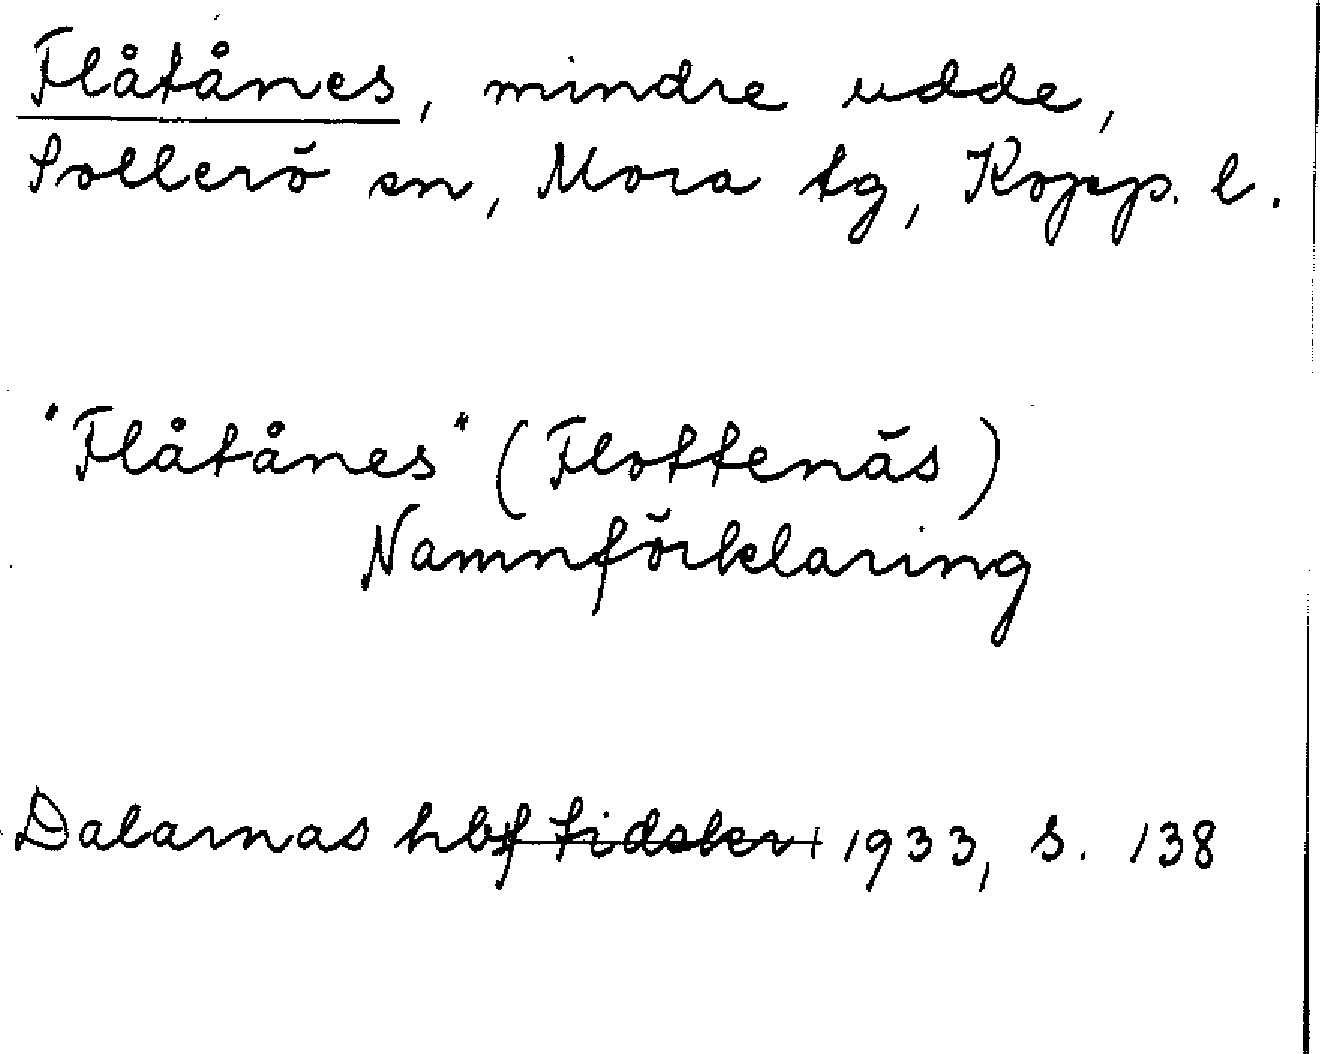 Flåtånes, mindre udde,
Sollerö sn, Mora tg, Kopp. l.
"Flåtånes" (Flottenäs)
Namnförklaring
Dalarnas hbf tidskr 1933, s. 138